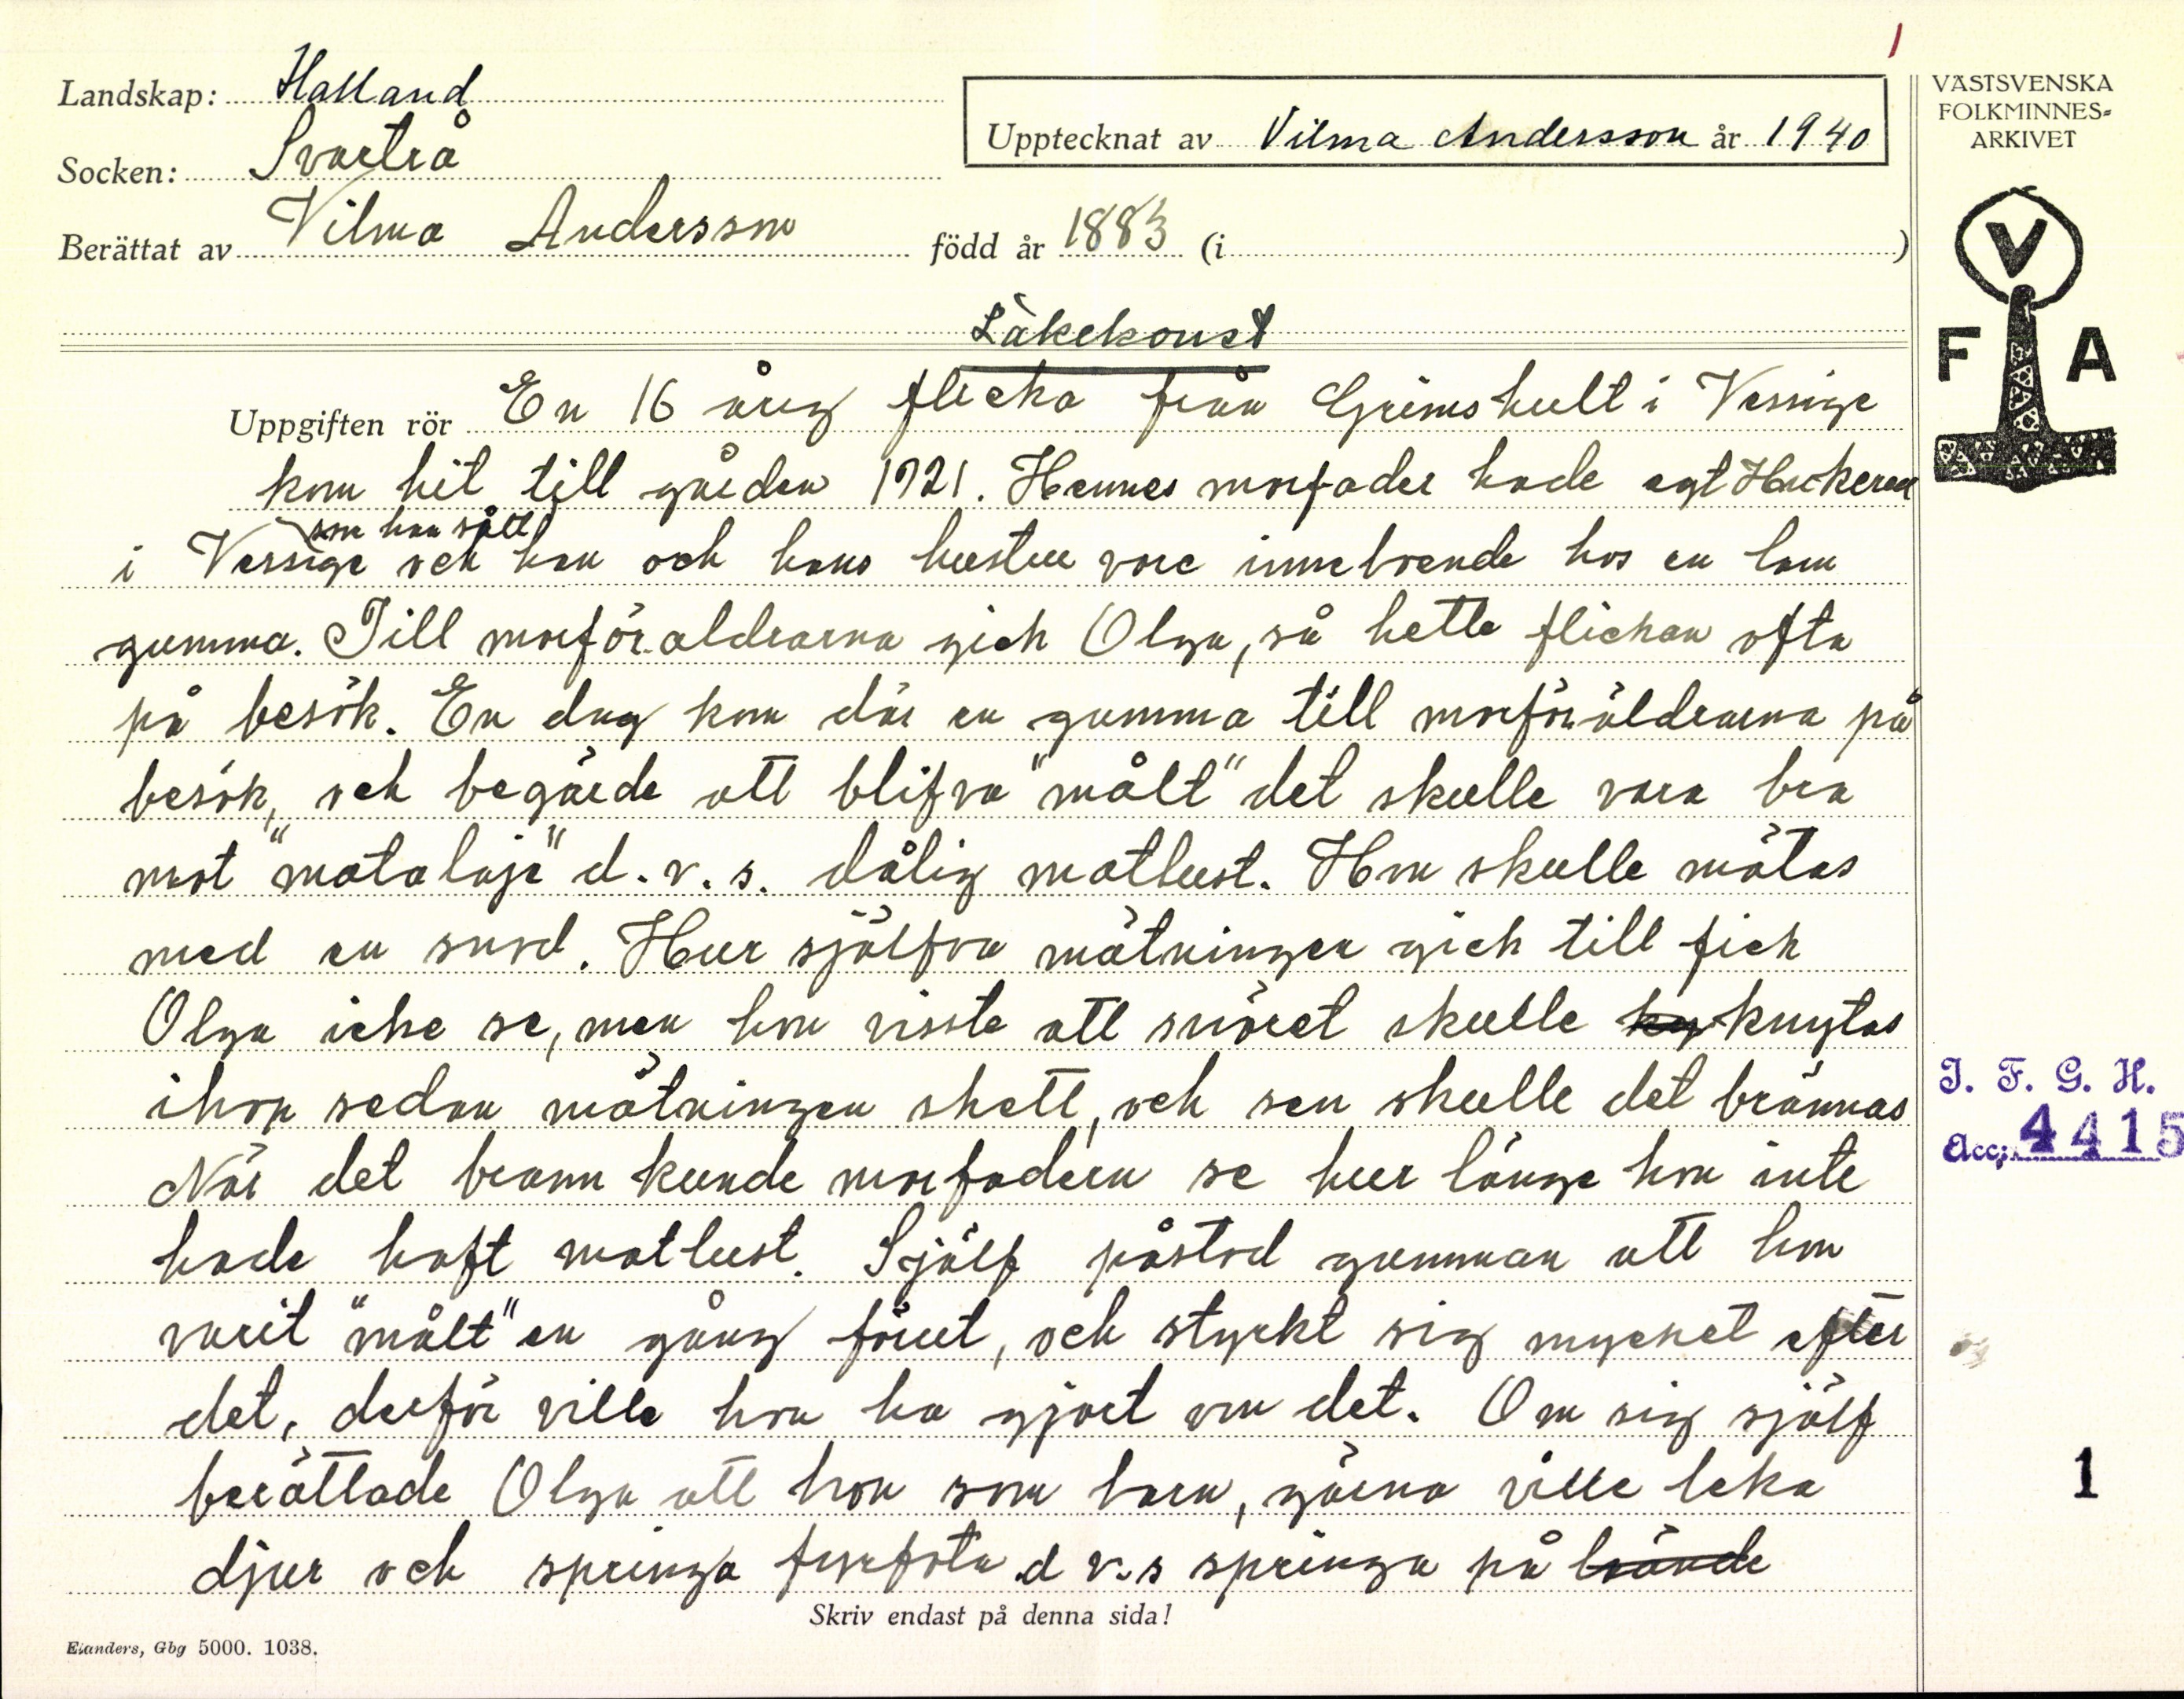 1
Landskap: Halland
Socken: Svartrå
Upptecknat av Vilma Andersson år 1940
Berättat av Vilma Andersson född år 1883 (i )
VÄSTSVENSKA
FOLKMINNES-
ARKIVET
V
F A
Läkekonst
Uppgiften rör En 16 årig flicka från Grimshult i Vessige
kom hit till gården 1921. Hennes morfader hade egt Huckered
som han sålt
i Vessige och han och hans hustru vore inneboende hos en lam
gumma. Till morföraldrarna gick Olga, så hette flickan ofta
på besök. En dag kom där en gumma till morföräldrarna på
besök, och begärde att blifva "mält" det skulle vara bra
mot "mataleje" d.v.s. dålig matlust. Hon skulle mätas
med en snod. Hur själfva mätningen gick till fick
Olga icke se, men hon visste att snöret skulle ky knytas
ihop sedan mätningen skett, och sen skulle det brännas
När det brann kunde morfadern se hur länge hon inte
hade haft matlust. Själf påstod gumman att hon
varit "mält" en gång förut, och styrkt sig mycket efter
det, derför ville hon ha gjort om det. Om sig själf
berättade Olga att hon som barn, gärna ville leka
djur och springa fyrfota d v.s springa på bäände
I. F. G. H.
Acc: 4415
1
Skriv endast på denna sida!
Elanders, Gbg 5000. 1038.